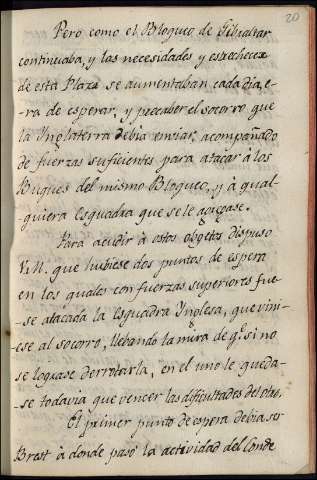 20
Pero como el Bloqueo de Gibraltar
continuaba, y las necesidades y estrecheces
de esta Plaza se aumentaban cada dia, e-
-ra de esperar, y precaber el socorro que
la Ynglaterra debia enviar, acompañado
de fuerzas suficientes para atacar à los
Buques del mismo Bloqueo, y à qual-
quiera Esquadra que se le
Para acudir à estos obgetos dispuso
V.M. que hubiese dos puntos de espera
en los quales con fuerzas superiores fue-
-se atacada la Esquadra Ynglesa, que vini-
-ese al socorro, llebando la mira de q.e si no
se lograse derrotarla, en el uno le queda-
-se todavia que vencer las dificultades del otro.
El primer punto de espera debia ser
Brest à donde pasó la actividad del Conde